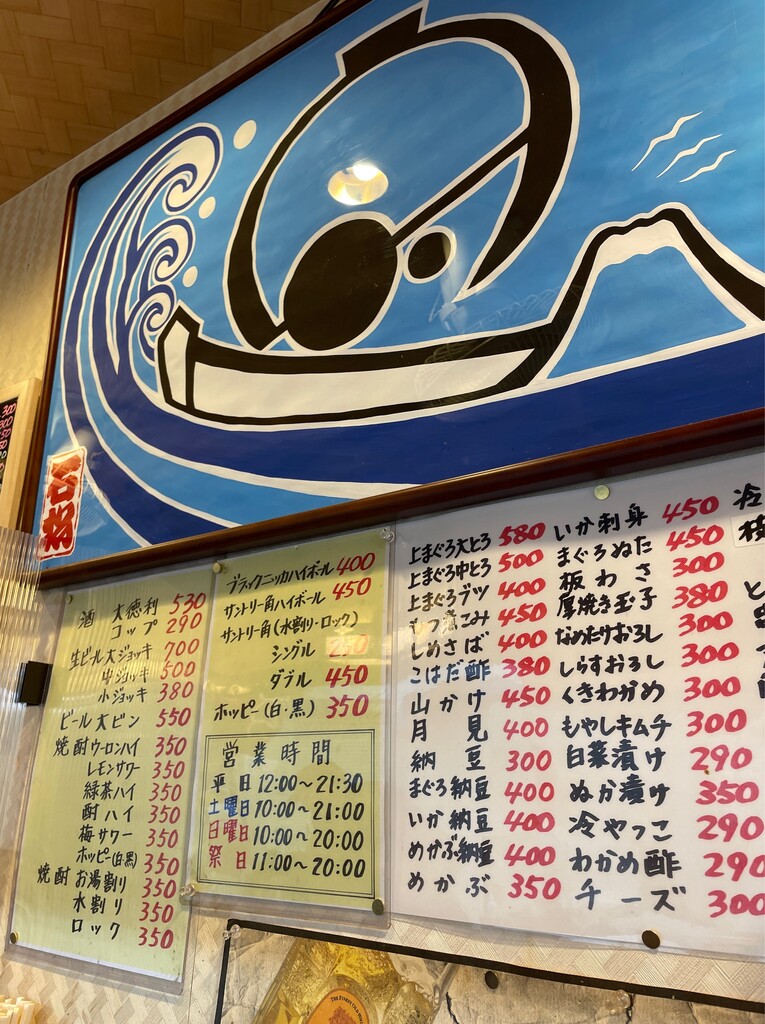 酒 大徳利 530
コップ 290
生ビール大ジョッキ 700
中ジョッキ 500
小ジョッキ 380
ビール大ビン 550
焼酎ウーロンハイ 350
レモンサワー 350
緑茶ハイ 350
酎ハイ 350
梅サワー 350
ホッピー(白・黒) 350
焼酎お湯割り 350
水割り 350
ロック 350
ブラックニッカハイボール 400
サントリー角ハイボール 450
サントリー角(水割り・ロック)
シングル
ダブル 450
ホッピー(白・黒) 350
営業時間
平日 12:00~21:30
土曜日 10:00~21:00
日曜日 10:00~20:00
祭日 11:00~20:00
上まぐろ大とろ 580
上まぐろ中とろ 500
上まぐろブツ 400
もつ煮こみ 450
しめさば 400
こはだ酢 380
山かけ 450
月見 400
納豆 300
まぐろ納豆 400
いか納豆 400
めかぶ納豆 400
めかぶ 350
いか刺身 450
まぐろぬた 450
板わさ 300
厚焼き玉子 380
なめたけおろし 300
しらすおろし 300
くきわかめ 300
もやしキムチ 300
白菜漬け 290
ぬか漬け 350
冷やっこ 290
わかめ酢 290
チーズ 300
冷